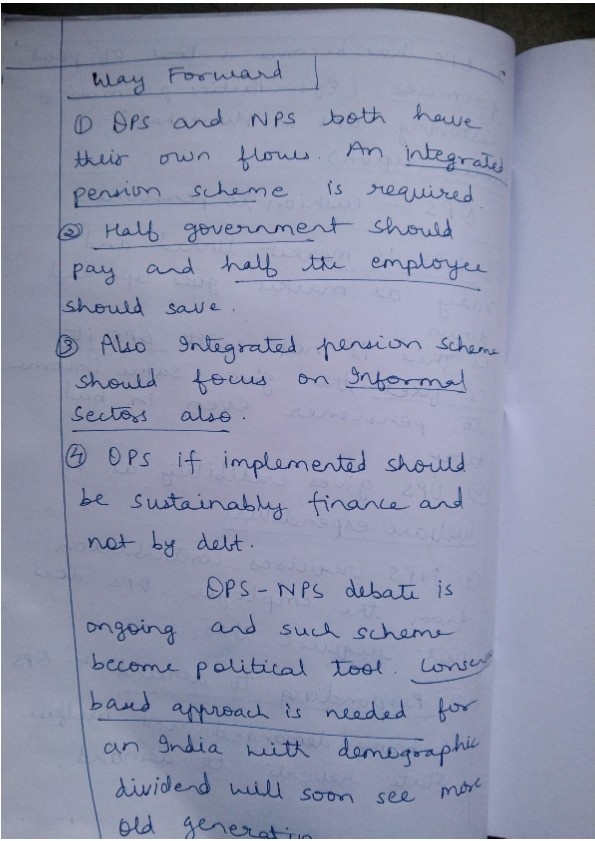 Way Forward
① OPS and NPS both have
their own flows. An integrated
pension scheme is required.
② Half government should
pay and half the employee
should save.
③ Also Integrated pension scheme
should focus on Informal
Sectors also.
④ OPS if implemented should
be sustainably finance and
not by debt.
OPS-NPS debate is
ongoing and such scheme
become political tool.
based approach is needed for
an India with demographic
dividend will soon see more
old